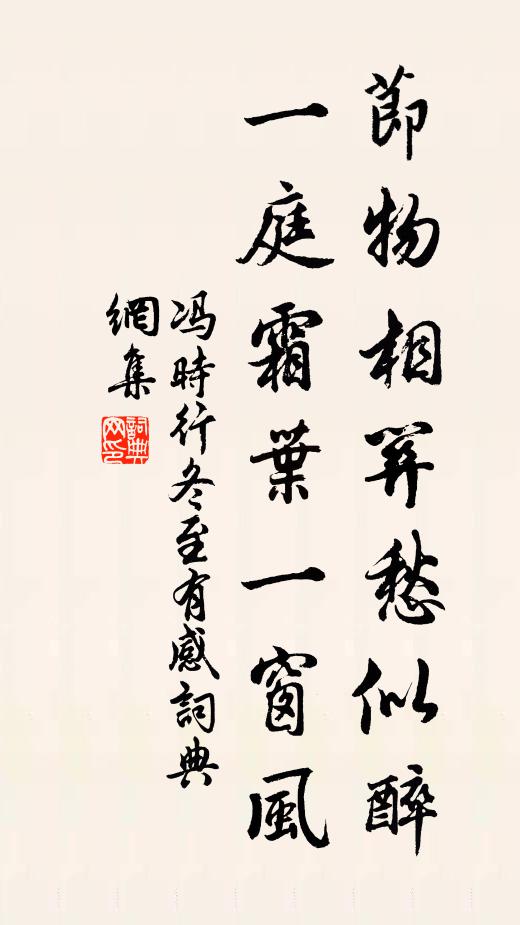 節物相愁似醉
一庭霜葉一窗風
冯時行冬至有感詞典
網集
詞典
网印